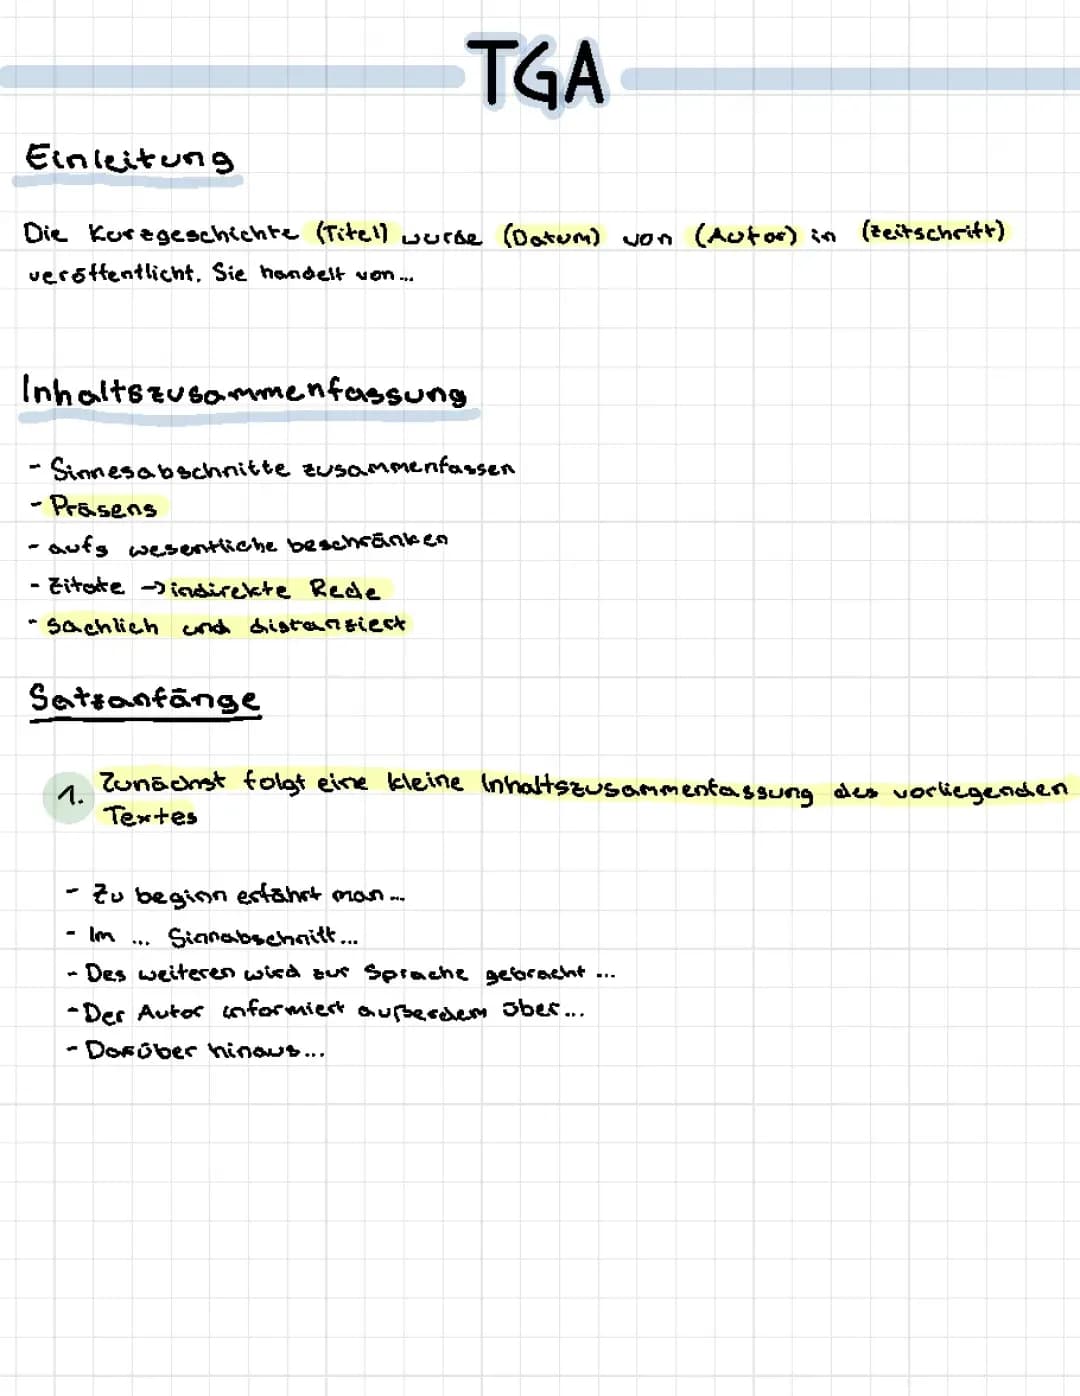 TGA
Einleitung
Die Kurzgeschichte (Titel) wurde (Datum) von (Autor) in (Zeitschrift)
veröffentlicht. Sie handelt von...
Inhaltszusammenfassung
- Sinnesabschnitte zusammenfassen
- Präsens
- aufs wesentliche beschränken
- Zitate → indirekte Rede
- sachlich und distanziert
Satzanfänge
1. Zunächst folgt eine kleine Inhaltszusammenfassung des vorliegenden
Textes
- Zu beginn erfährt man...
- Im ... Sinnabschnitt...
- Des weiteren wird zur Sprache gebracht ...
- Der Autor informiert außerdem über...
- Darüber hinaus...